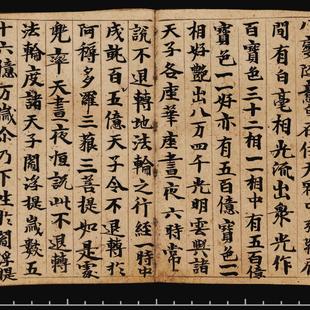 間有白毫相光流出衆光作
百寶色三十二相一一相中有五百億
寶色一一好亦有五百億寶色一一
相好艷出八万四千光明雲與諸
天子各座華座晝夜六時常
說不退轉地法輪之行經一時中
成就百五億天子令不退轉於
阿耨多羅三藐三菩提如是處
兜率天晝夜恒說此不退轉
法輪度諸天子閻浮提歲數五
十六億万歲尒乃下生於閻浮提